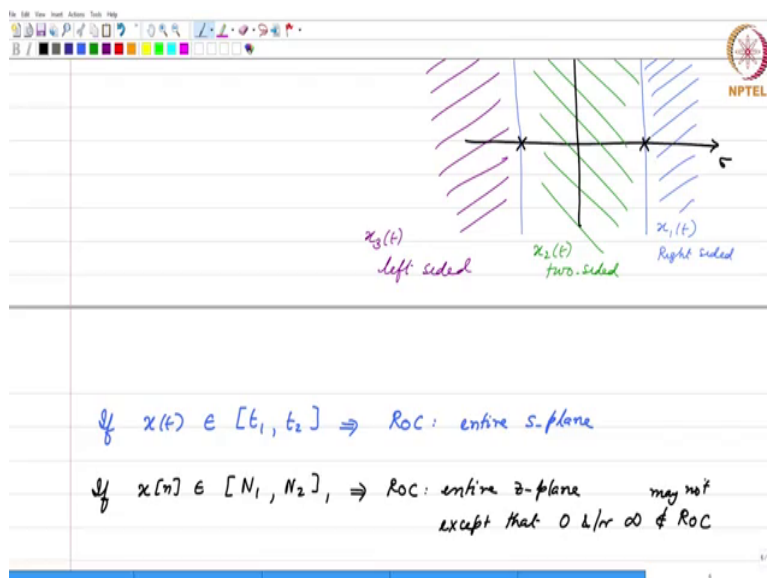 File Edit View Insert Actions Tools Help
B I
NPTEL
σ
x₃(t)
left sided
x₂(t)
two-sided
x₁(t)
Right sided
If x(t) ∈ [t₁, t₂] ⇒ RoC: entire s-plane
If x[n] ∈ [N₁, N₂], ⇒ RoC: entire z-plane may not
except that 0 &/or ∞ ∉ RoC